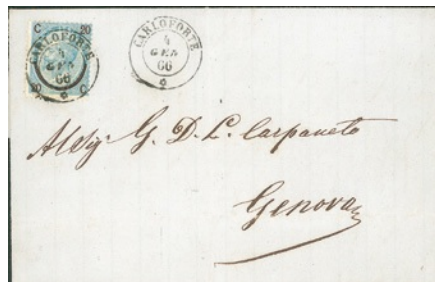 C 20
CARLOFORTE
4
GEN
66
20 C
CARLOFORTE
4
GEN
66
All Sig. G. D. L. Carpaneto
Genova